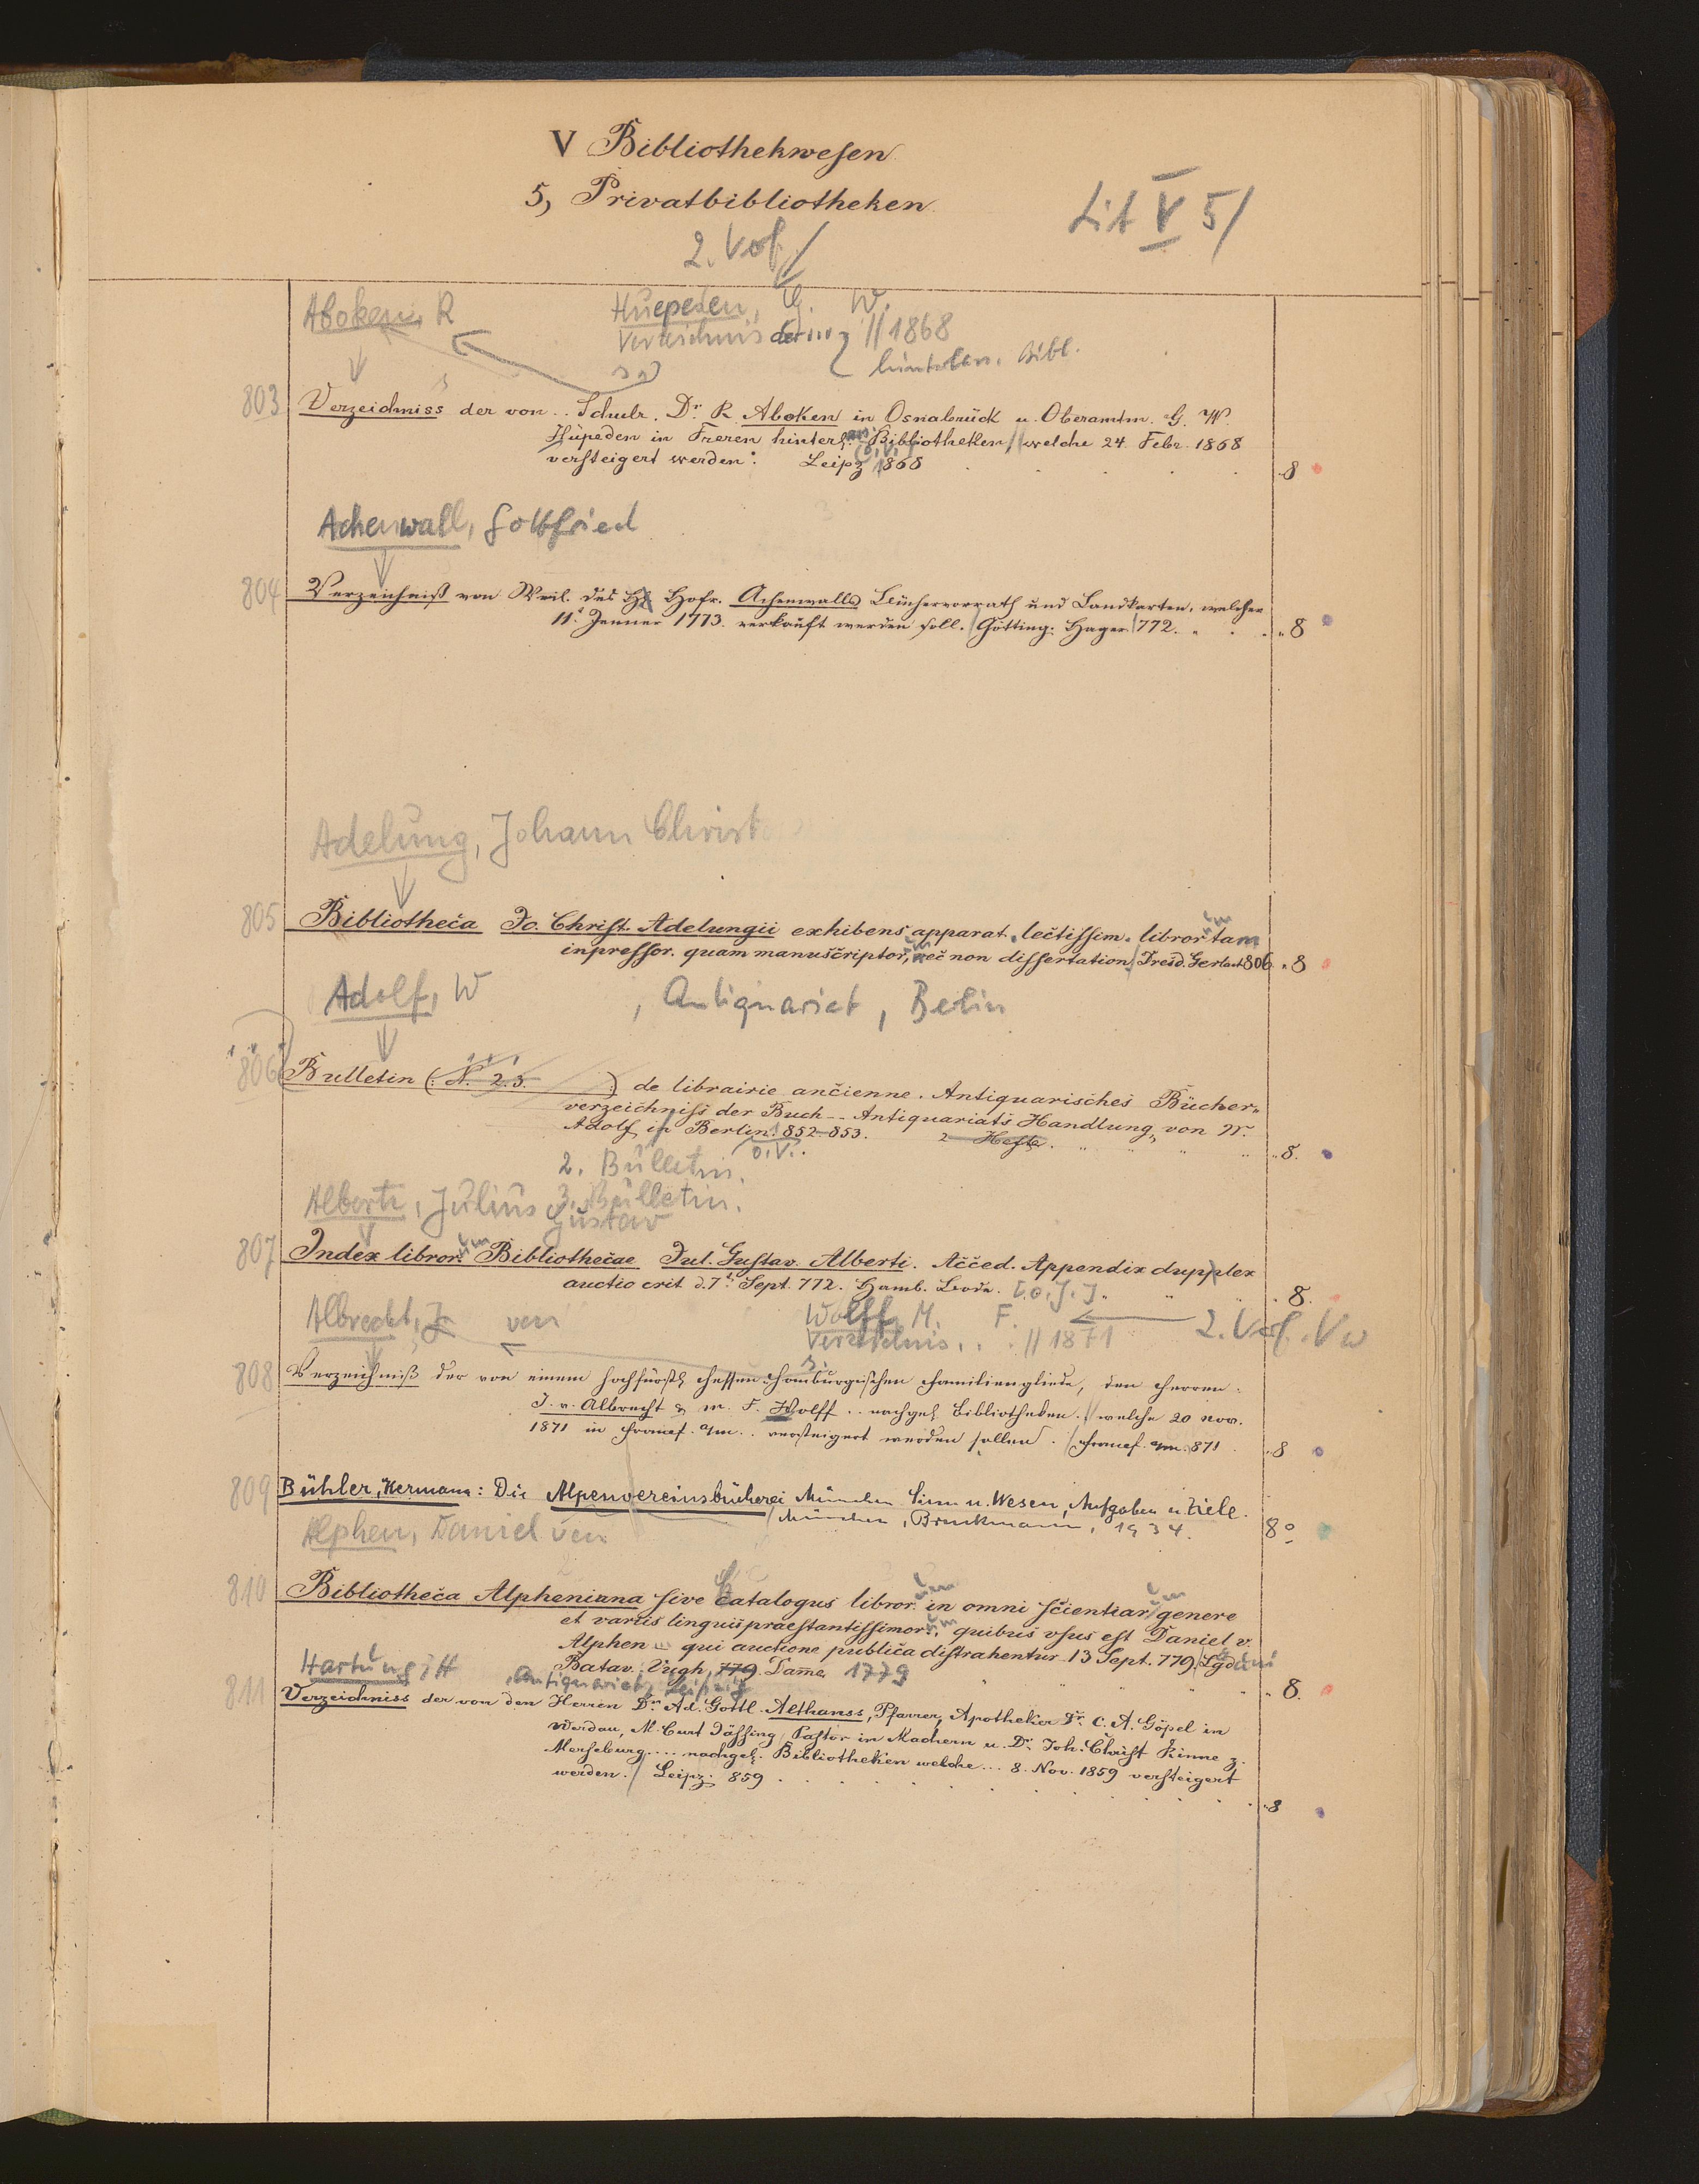 V Bibliothekwesen
5, Privatbibliotheken
Lit V 5/
2. Vof
Aboken, R
Huepeden, G. W.
Verzeichnis der ... // 1868
hinterlass. Bibl.
803 Verzeichniss der von .. Schulr. Dr. R. Aboken in Osnabrück u. Oberamtm. G. W.
Hüpeden in Freren hinterl. Bibliotheken, welche 24. Febr. 1868
versteigert werden. Leipz 1868 8
Achenwall, Gottfried
804 Verzeichniß von Weil. des H. Hofr. Achenwalls Büchervorrath und Landkarten, welcher
11t. Jenner 1773. verkauft werden soll. Götting. Hager 772. 8
Adelung, Johann Christ
805 Bibliotheca Jo. Christ. Adelungii exhibens apparat. lectissim. libror um tam
inpressor. quam manuscriptor, um nec non dissertation. Dresd. Gerlach 806. 8
Adolf, W , Antiquariat, Berlin
806 Bulletin (: N. 2.3. :) de librairie ancienne. Antiquarisches Bücher-
verzeichniss der Buch-- Antiquariats Handlung von W.
Adolf in Berlin. 852-853. 2 Hefte. 8.
o.V.
2. Bulletin.
3. Bulletin.
Alberti, Julius Gustav
807 Index libror. um Bibliothecae Jul. Gustav. Alberti. Acced. Appendix dupplex
auctio erit d. 7t. Sept. 772. Hamb. Bode. [o. J.] 8.
Albrecht, J. von
Wolff, M. F. 2. Vof. Vw
Verzeichnis .. // 1871
808 Verzeichniß der von einem hochfürstl. Hessen-Homburgischen Familiengliede, den Herren
J. v. Albrecht & M. F. Wolff .. nachgel. Bibliotheken. welche 20 Nov.
1871 in Francf. a/m. . versteigert werden sollen. Francf. a/m. 871 8
809 Bühler, Hermann: Die Alpenvereinsbücherei München Sinn u. Wesen, Aufgaben u. Ziele.
München, Bruckmann, 1934. 8°
Alphen, Daniel van
810 Bibliotheca Alpheniana sive Catalogus libror. um in omni scientiar um genere
et variis linguis praestantissimor. um, quibus vsus est Daniel v.
Alphen qui auctione publica distrahentur 13 Sept. 779. Lgd
Batav. Vygh, 779. Damme 1779 8.
Hartung, H , Antiquariat, Leipzig
811 Verzeichniss der von den Herren Dr. Ad. Gottl. Althanss, Pfarrer, Apotheker Dr. C. A. Göpel in
Werdau, M. Curt Jässing, Pastor in Machern u. Dr. Joh. Christ Kinne z.
Merseburg .... nachgel. Bibliotheken welche ... 8. Nov. 1859 versteigert
werden. Leipz. 859 8